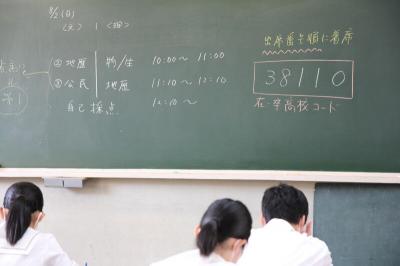 8/2(日)
〈文〉 1 〈理〉
② 地歴 物/生 10:00〜11:00
③ 公民 地歴 11:10〜12:10
自己採点 12:10〜
出席番号順に着席
38110
在・卒高校コード